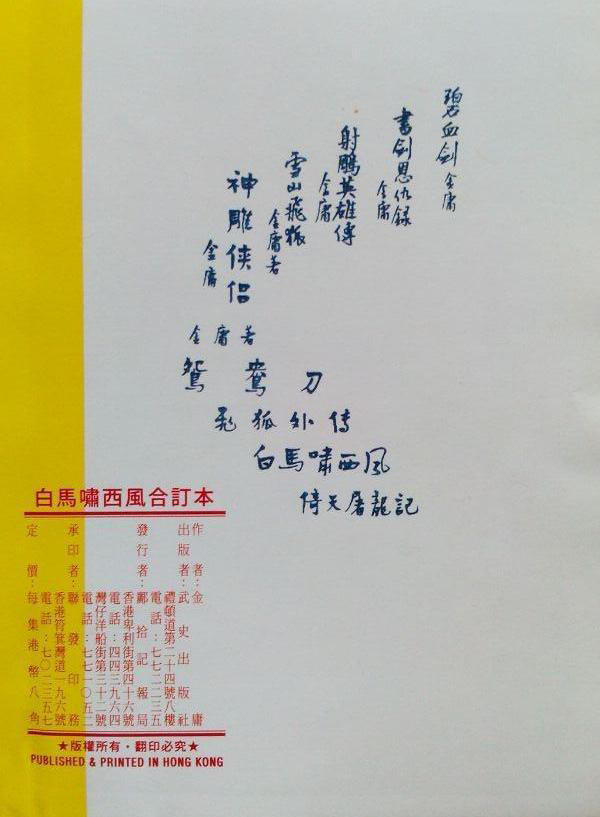 碧血劍 金庸
書劍恩仇録
金庸
射鵰英雄傳
金庸
雪山飛狐
金庸著
神雕俠侶
金庸
金庸著
鴛鴦刀
飛狐外傳
白馬嘯西風
倚天屠龍記
白馬嘯西風合訂本
作者：金庸
出版者：武史出版社
禮頓道第二十四號八樓
電話：七七
發行者：鄺拾記報局
香港卑利街第四十六號
電話：四四三九六四
灣仔洋船街第三十二號
電話：七七一〇五二
承印者：聯發印務
香港筲箕灣道一九六號
電話：七〇二三五七
定價：每集港幣八角
★版權所有・翻印必究★
PUBLISHED & PRINTED IN HONG KONG